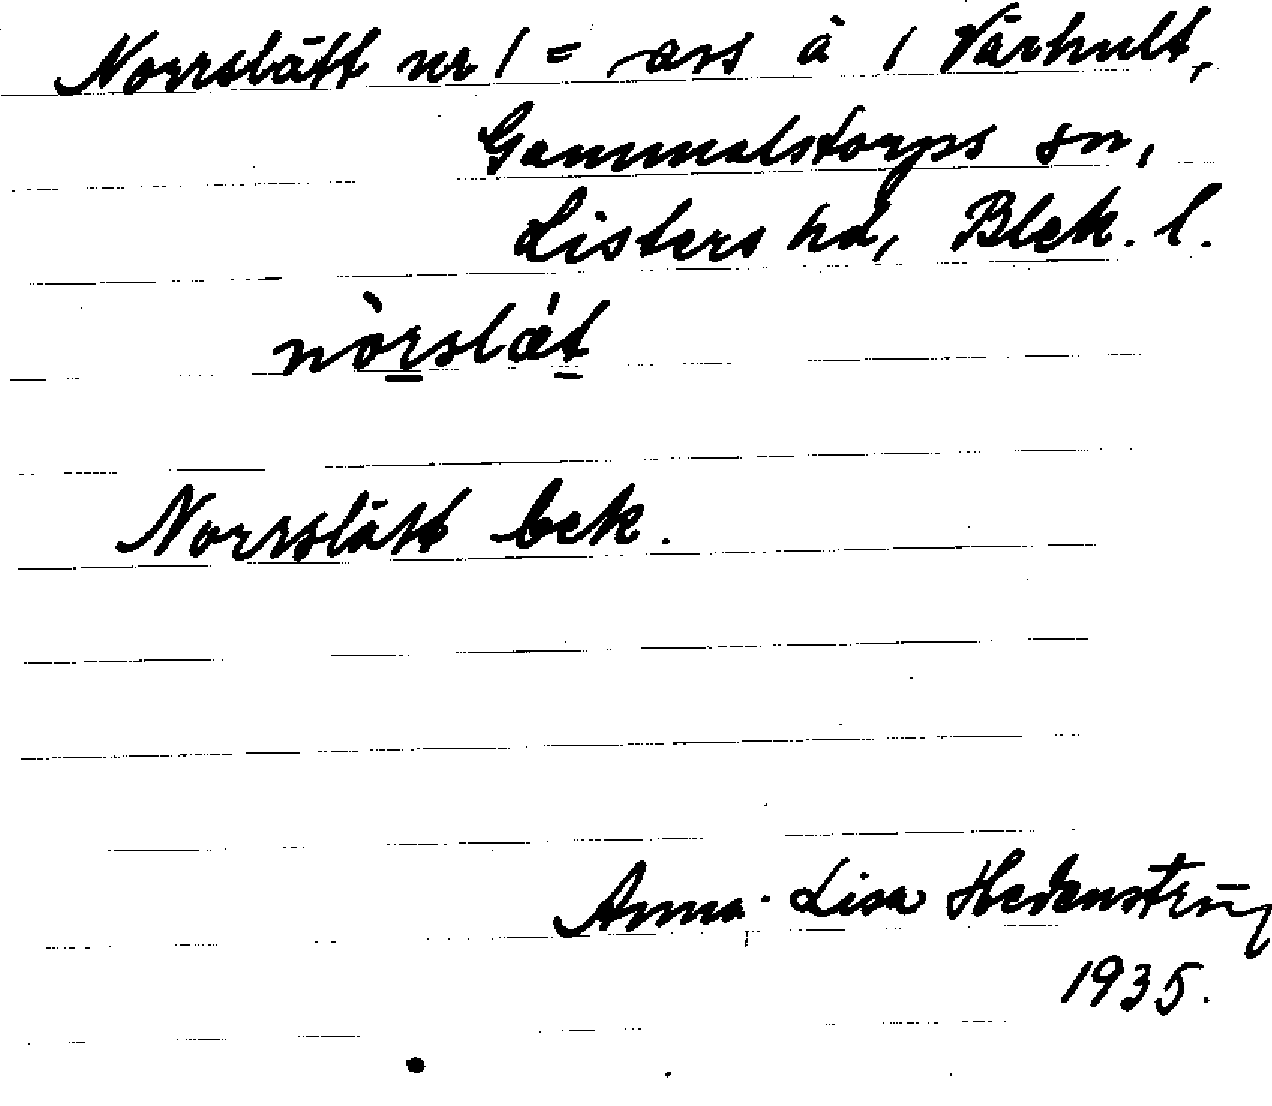 Norrslätt nr 1 = avs å 1 Vårhult,
Gammalstorps sn,
Listers hd, Blek. l.
nòrslǽt
Norrslätt bek.
Anna-Lisa Hedenstrüg
1935.